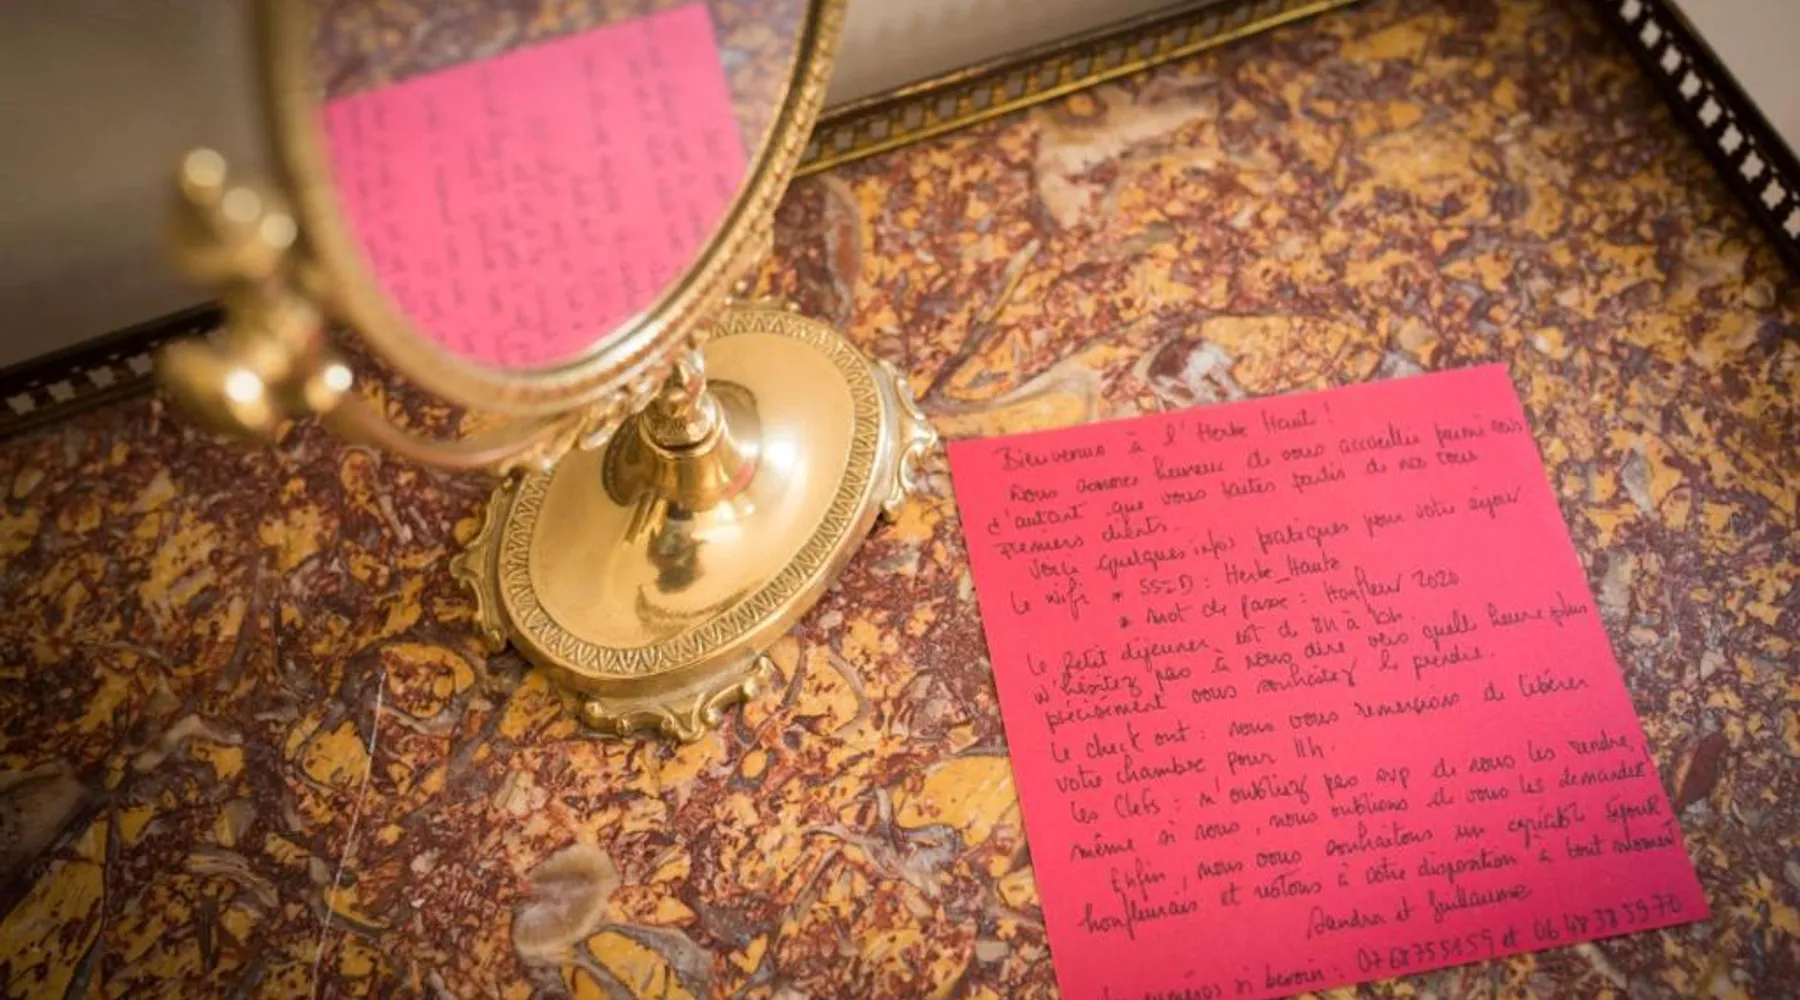 Bienvenus à l'Herbe Haute !
Nous sommes heureux de vous accueillir parmi nous
d'autant que vous faites partis de nos tous
premiers clients.
Voici quelques infos pratiques pour votre séjour
Le wifi * SSID : Herbe_Haute
* Mot de passe : Honfleur 2020
Le petit déjeuner est de 8H à 10h.
N'hésitez pas à nous dire vers quelle heure plus
précisément vous souhaitez le prendre.
Le check out : nous vous remercions de libérer
votre chambre pour 11h.
Les Clefs : n'oubliez pas svp de nous les rendre,
même si nous, nous oublions de vous les demander.
Enfin, nous vous souhaitons un agréable séjour
honfleurais et restons à votre disposition à tout moment
Sandra et Guillaume
numéros si besoin : et 06 48 38 59 70